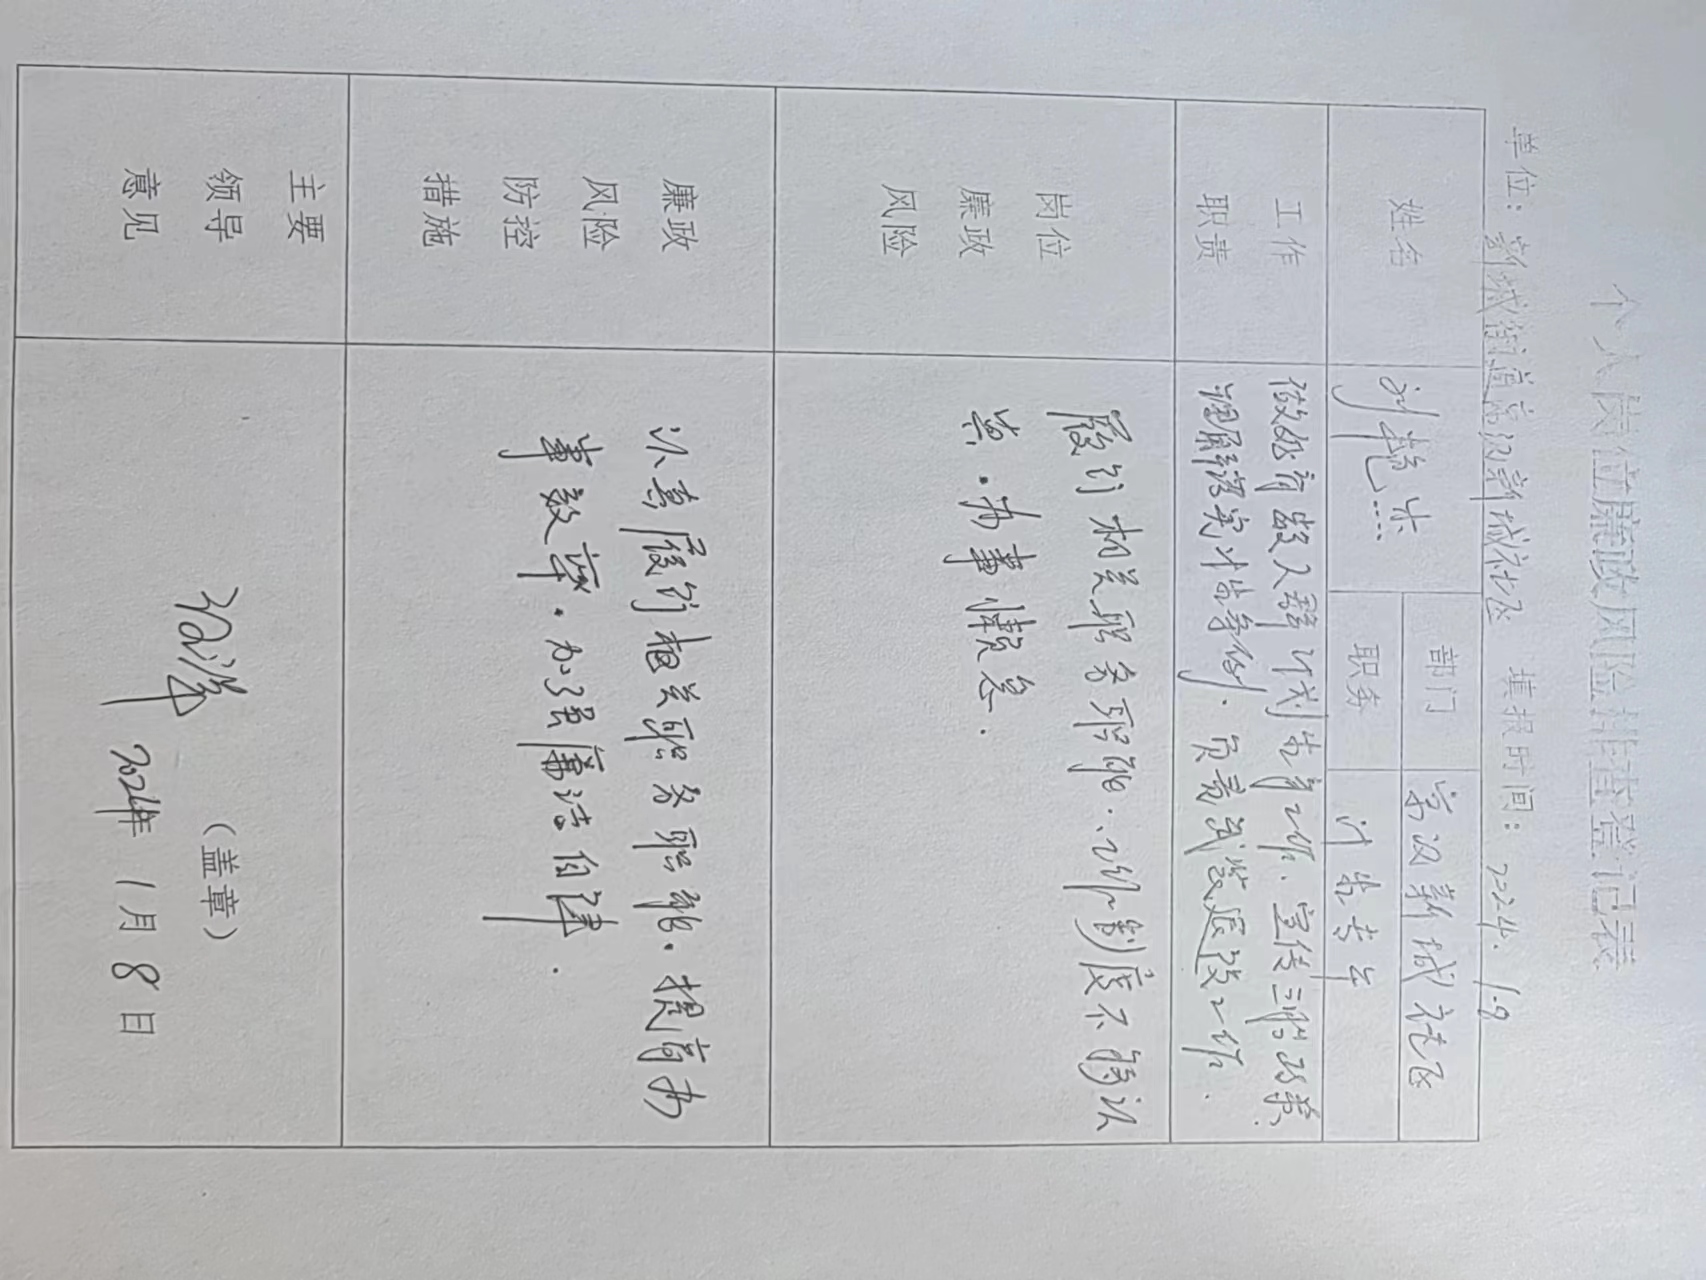 个人岗位廉政风险排查登记表
单位：新城街道京汉新城社区 填报时间：2024.1.8
姓名 刘艳 部门 京汉新城社区
职务 计生专干
工作职责 做好育龄人群计划生育工作．宣传三胎政策．
理解落实计生条例．负责武装退役工作．
岗位廉政风险 履行相关职务职能．工作制度不够认
真．办事懒怠．
廉政风险防控措施 认真履行相关职务职能．提高办
事效率．加强廉洁自律．
主要领导意见
（盖章）
2024年1月8日